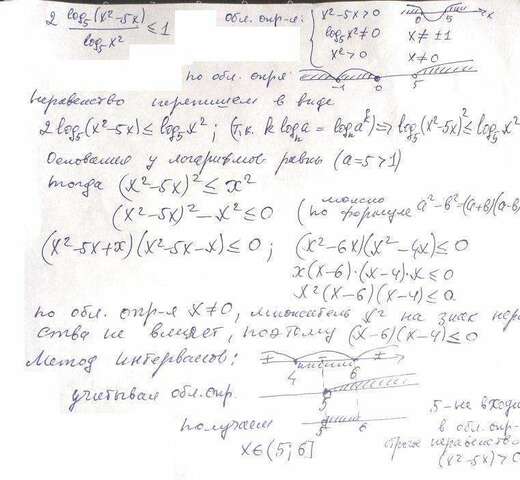 2 log₅(x²-5x) / log₅x² ≤ 1   обл. опр-я: { x²-5x>0   0 5 x
log₅x² ≠ 0   x ≠ ±1
x²>0   x ≠ 0
по обл. опр-я   -1 0 5
Неравенство перепишем в виде
2log₅(x²-5x) ≤ log₅x² ; (т.к. k logₐn = logₐnᵏ) ⇒ log₅(x²-5x)² ≤ log₅x²
Основания у логарифмов равны (a=5>1)
тогда (x²-5x)² ≤ x²
(x²-5x)² - x² ≤ 0   (можно по формуле a²-b²=(a+b)(a-b)
(x²-5x+x)(x²-5x-x) ≤ 0 ;   (x²-6x)(x²-4x) ≤ 0
x(x-6)·(x-4)·x ≤ 0
x²(x-6)(x-4) ≤ 0
по обл. опр-я x≠0, множитель x² на знак нера
ства не влияет, поэтому (x-6)(x-4) ≤ 0
Метод интервалов:   + - +
4 6
учитывая обл. опр.   5
получаем   5 6
x∈(5;6]
5 - не входи
в обл. опр-
строгое неравенство
(x²-5x)>0